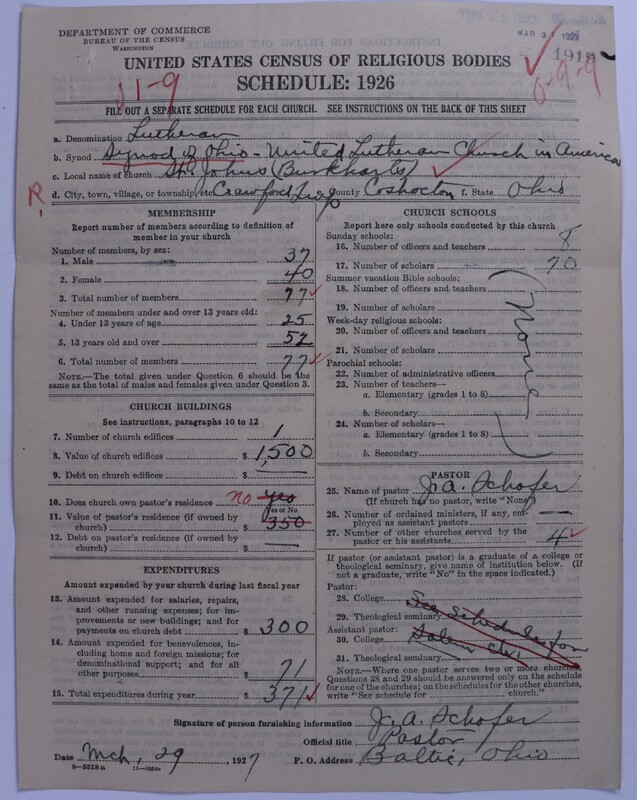 DEPARTMENT OF COMMERCE
BUREAU OF THE CENSUS
WASHINGTON
MAR 3 1927
1918
UNITED STATES CENSUS OF RELIGIOUS BODIES
SCHEDULE: 1926
11-9
0-9-9
FILL OUT A SEPARATE SCHEDULE FOR EACH CHURCH. SEE INSTRUCTIONS ON THE BACK OF THIS SHEET
a. Denomination Lutheran
b. Synod Synod of Ohio - United Lutheran Church in America
c. Local name of church St. Johns (Burkharts)
R. d. City, town, village, or township, etc Crawford Twp County Coshocton f. State Ohio
MEMBERSHIP
Report number of members according to definition of
member in your church
Number of members, by sex:
1. Male 37
2. Female 40
3. Total number of members 77
Number of members under and over 13 years old:
4. Under 13 years of age 25
5. 13 years old and over 52
6. Total number of members 77
NOTE.—The total given under Question 6 should be the
same as the total of males and females given under Question 3.
CHURCH BUILDINGS
See instructions, paragraphs 10 to 12
7. Number of church edifices 1
8. Value of church edifices $ 1,500
9. Debt on church edifices $ —
10. Does church own pastor's residence no yes
Yes or No
11. Value of pastor's residence (if owned by
church) $ 350
12. Debt on pastor's residence (if owned by
church) $ —
EXPENDITURES
Amount expended by your church during last fiscal year
13. Amount expended for salaries, repairs,
and other running expenses; for im-
provements or new buildings; and for
payments on church debt $ 300
14. Amount expended for benevolences, in-
cluding home and foreign missions; for
denominational support; and for all
other purposes $ 71
15. Total expenditures during year $ 371
CHURCH SCHOOLS
Report here only schools conducted by this church
Sunday schools:
16. Number of officers and teachers 8
17. Number of scholars 70
Summer vacation Bible schools:
18. Number of officers and teachers
19. Number of scholars
Week-day religious schools:
20. Number of officers and teachers
21. Number of scholars
Parochial schools:
22. Number of administrative officers
23. Number of teachers—
a. Elementary (grades 1 to 8)
b. Secondary
24. Number of scholars—
a. Elementary (grades 1 to 8)
b. Secondary
(None)
PASTOR
25. Name of pastor J. A. Schofer
(If church has no pastor, write "None")
26. Number of ordained ministers, if any, em-
ployed as assistant pastors —
27. Number of other churches served by the
pastor or his assistants 4
If pastor (or assistant pastor) is a graduate of a college or
theological seminary, give name of institution below. (If
not a graduate, write "No" in the space indicated.)
Pastor:
28. College See Schedule for
29. Theological seminary
Assistant pastor: Salem
30. College
31. Theological seminary
NOTE.—Where one pastor serves two or more churches
Questions 28 and 29 should be answered only on the schedule
for one of the churches; on the schedules for the other churches,
write "See schedule for church."
Signature of person furnishing information J. A. Schofer
Official title Pastor
Date Mch, 29, 1927 P. O. Address Baltic, Ohio
8—5318 a